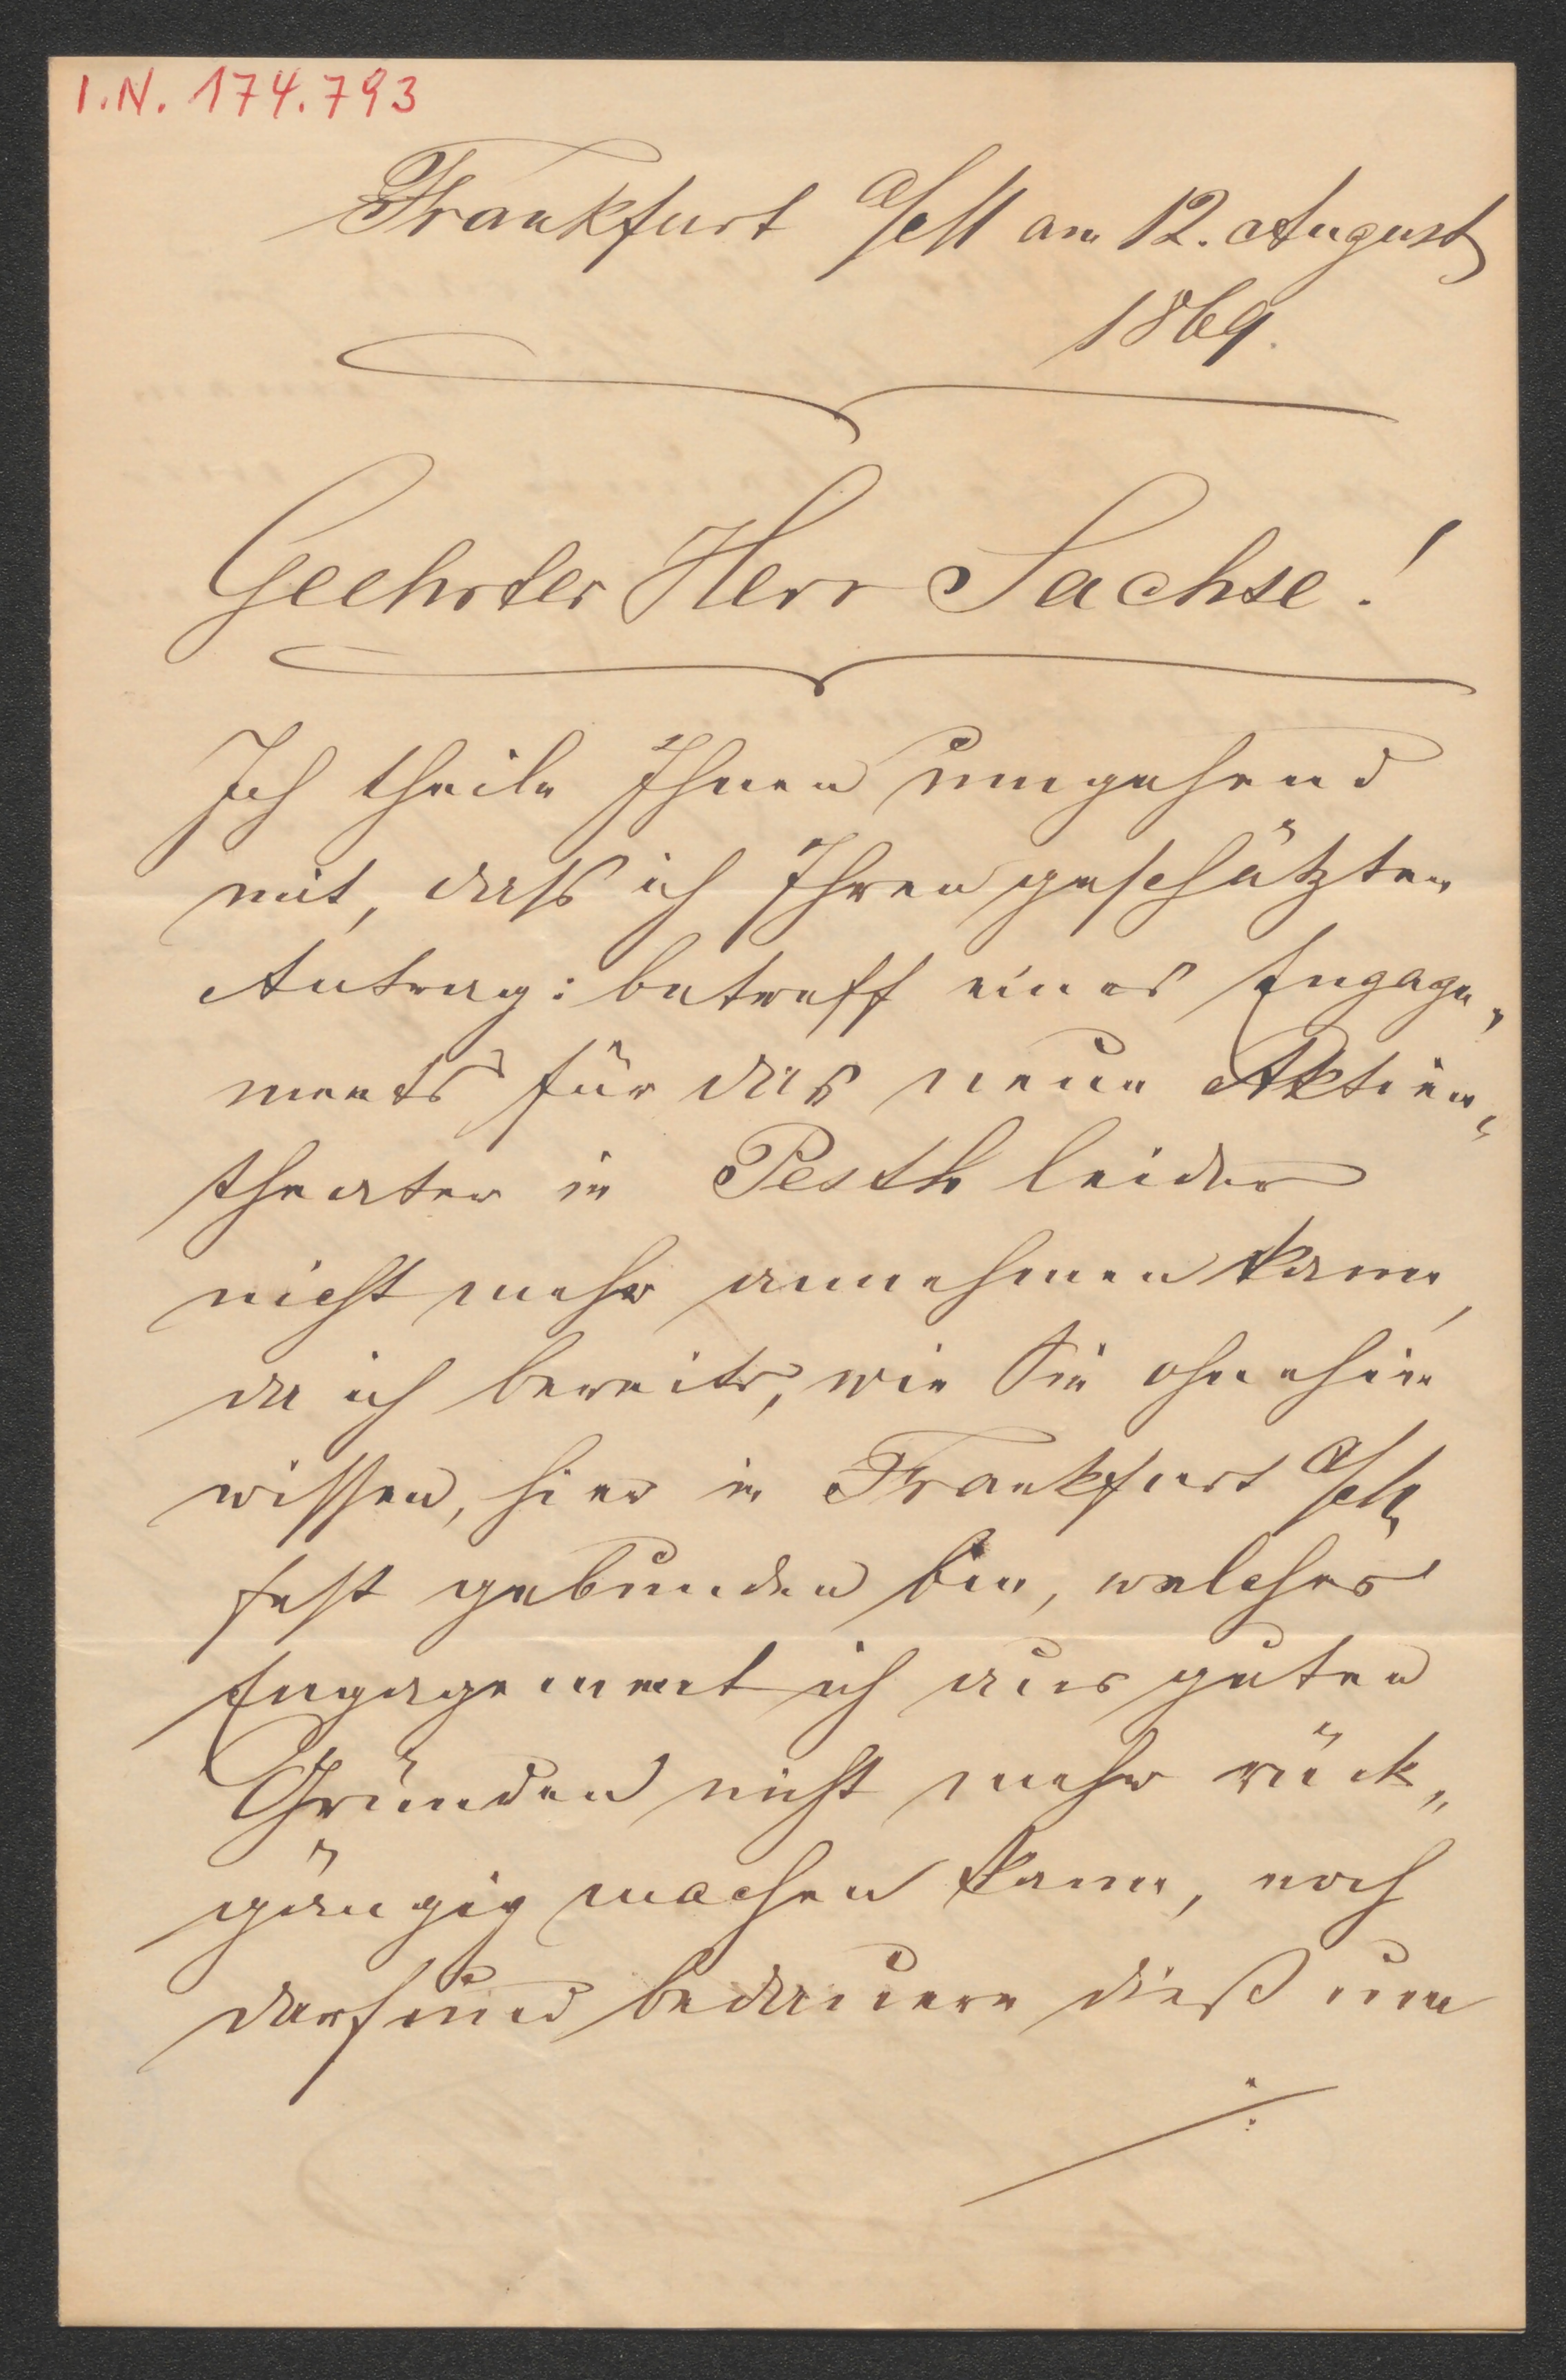 I.N. 174.793
Frankfurt a/M am 12. August
1869.
Geehrter Herr Sachse!
Ich theile Ihnen umgehend
mit, dass ich Ihren geschätzten
Antrag: betreff eines Engage„
ments für das neue Aktien„
theater in Pesth leider
nicht mehr annehmen kann,
da ich bereits, wie Sie ohnehin
wissen, hier in Frankfurt a/M
fest gebunden bin, welches
Engagement ich aus guten
Gründen nicht mehr rück„
gängig machen kann, noch
darf und bedauere dieß um
./.